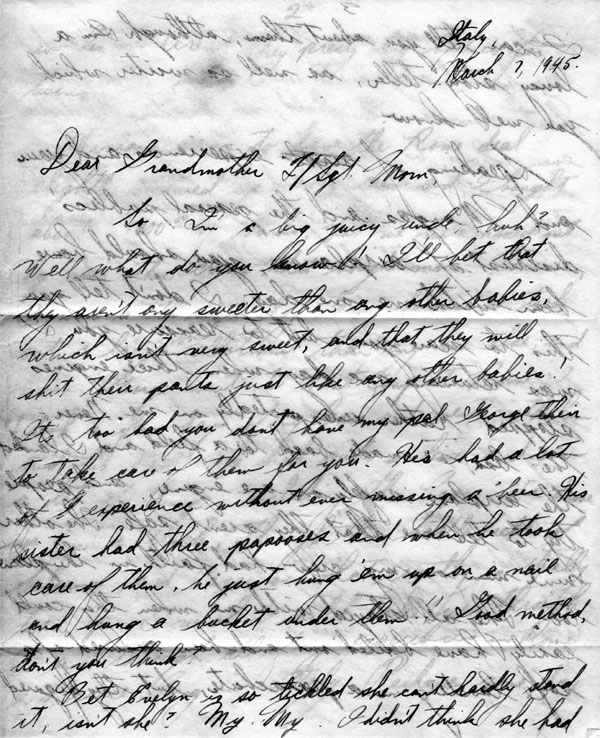 Italy,
March 7, 1945.
Dear Grandmother F/Sgt. Mom,
So I'm a big juicy uncle, huh?
Well what do you know! I'll bet that
they aren't any sweeter than any other babies,
which isn't very sweet, and that they will
shit their pants just like any other babies!
It's too bad you don't have my pal George there
to take care of them for you. He's had a lot
of experience without ever missing a beer. His
sister had three papooses and when he took
care of them, he just hung 'em up on a nail
and hung a bucket under them!! Good method,
don't you think?
Bet Evelyn is so tickled she can't hardly stand
it, isn't she? My. My. I didn't think she had